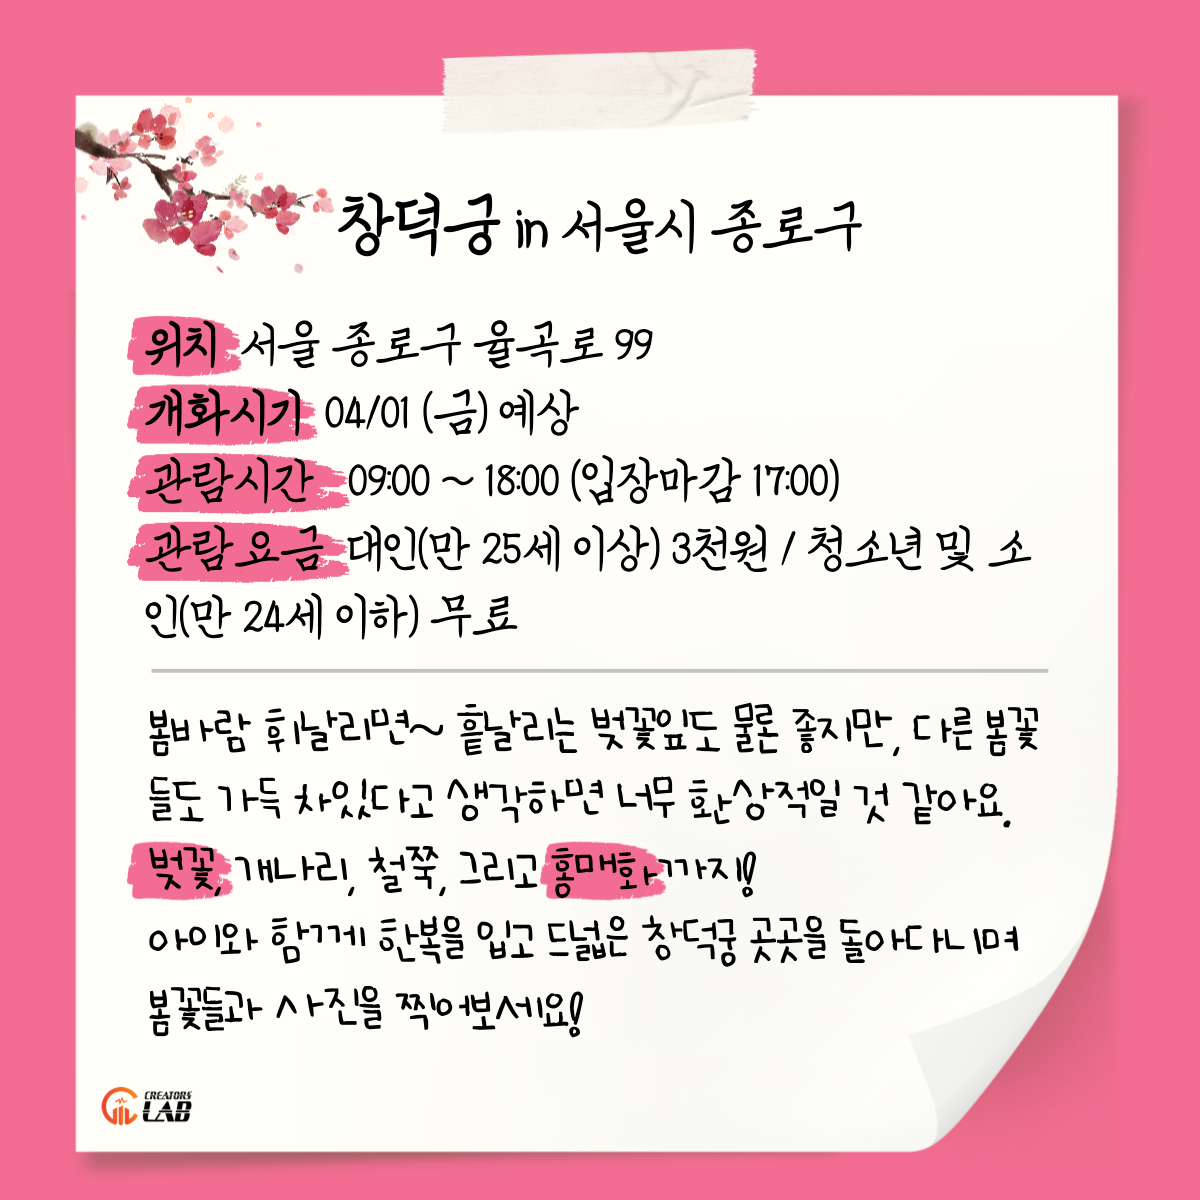 창덕궁 in 서울시 종로구
위치 서울 종로구 율곡로 99
개화시기 04/01 (금) 예상
관람시간 09:00 ~ 18:00 (입장마감 17:00)
관람요금 대인(만 25세 이상) 3천원 / 청소년 및 소
인(만 24세 이하) 무료
봄바람 휘날리면~ 흩날리는 벚꽃잎도 물론 좋지만, 다른 봄꽃
들도 가득 차있다고 생각하면 너무 환상적일 것 같아요.
벚꽃, 개나리, 철쭉, 그리고 홍매화까지!
아이와 함께 한복을 입고 드넓은 창덕궁 곳곳을 돌아다니며
봄꽃들과 사진을 찍어보세요!
CREATORS
LAB